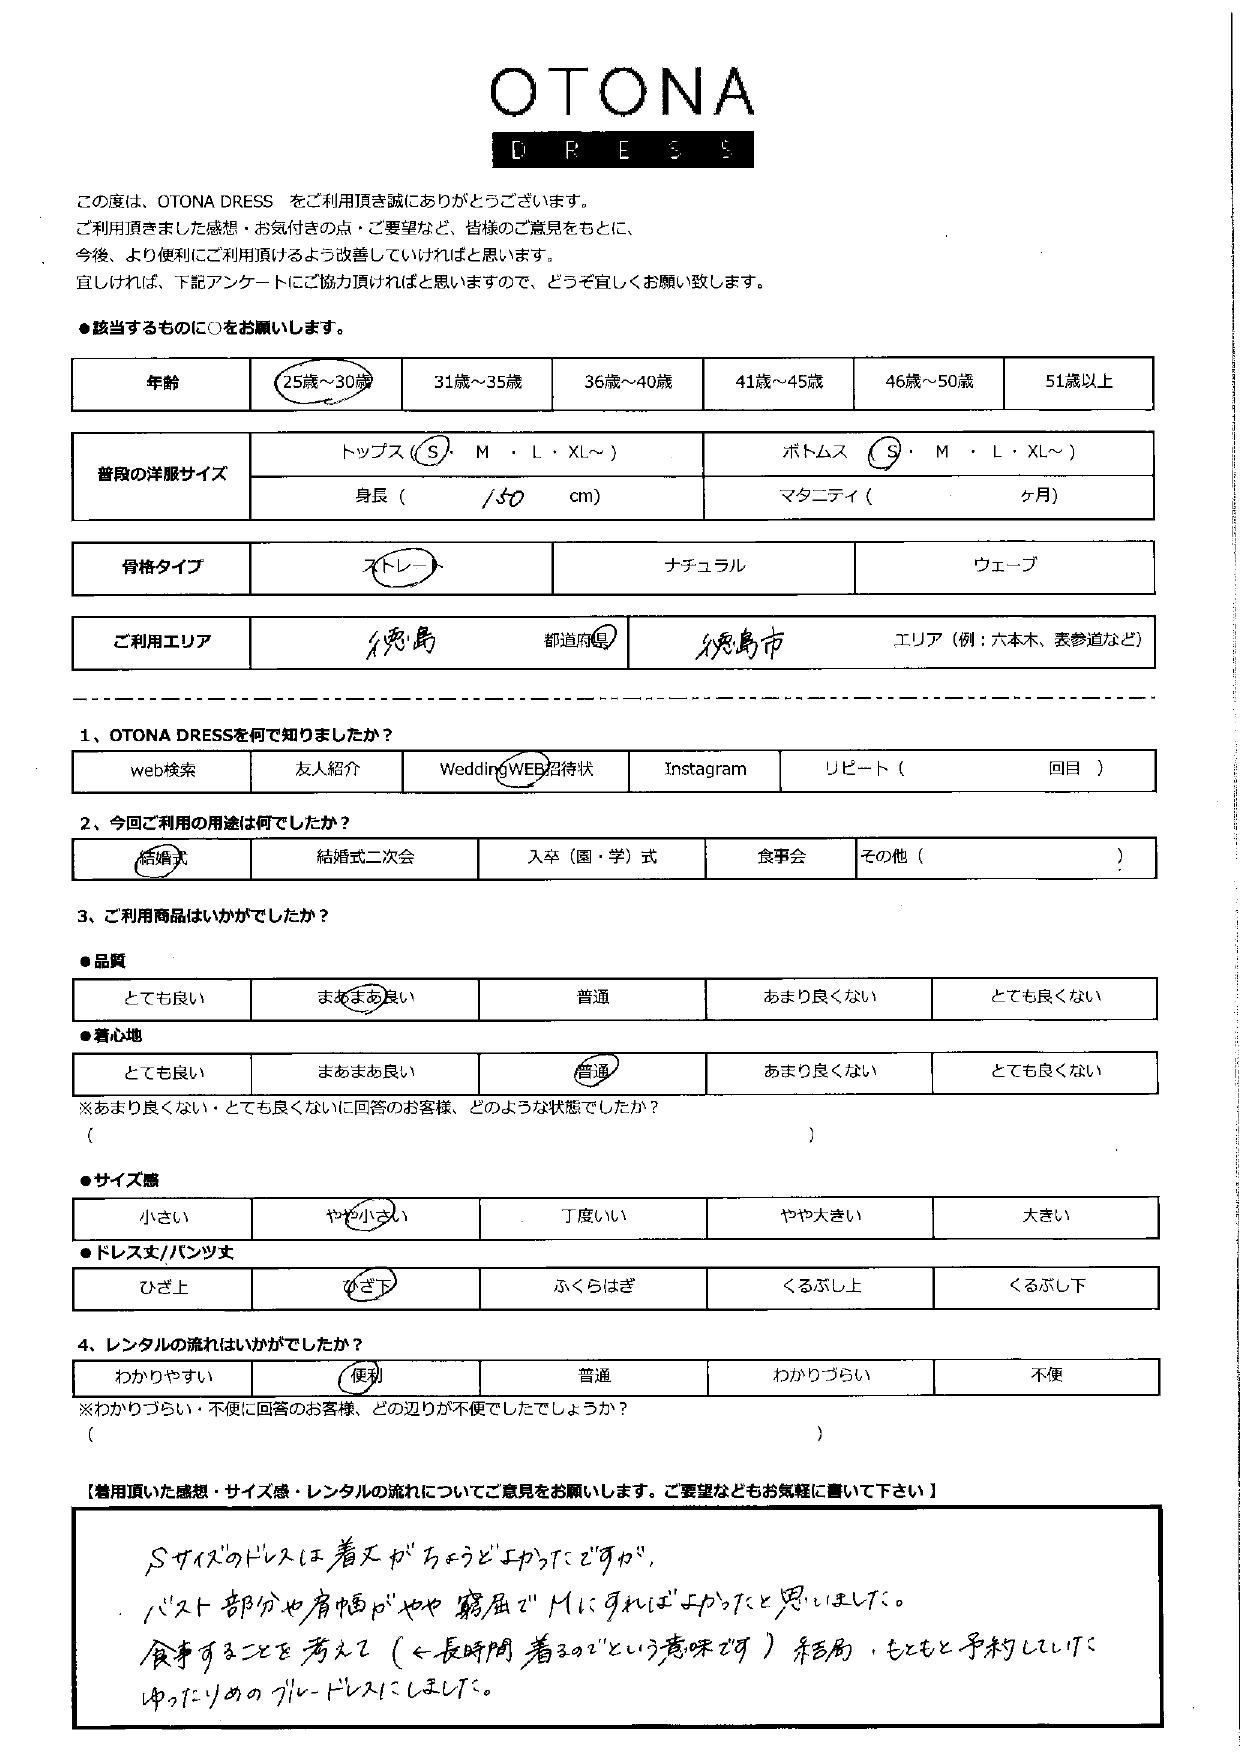 OTONA
DRESS
この度は、OTONA DRESS　をご利用頂き誠にありがとうございます。
ご利用頂きました感想・お気付きの点・ご要望など、皆様のご意見をもとに、
今後、より便利にご利用頂けるよう改善していければと思います。
宜しければ、下記アンケートにご協力頂ければと思いますので、どうぞ宜しくお願い致します。
●該当するものに○をお願いします。
年齢 25歳～30歳 31歳～35歳 36歳～40歳 41歳～45歳 46歳～50歳 51歳以上
普段の洋服サイズ トップス（S・ M ・ L ・ XL～ ） ボトムス S・ M ・ L ・ XL～ ）
身長（ 150 cm） マタニティ（ ヶ月）
骨格タイプ ストレート ナチュラル ウェーブ
ご利用エリア 徳島 都道府県 徳島市 エリア（例：六本木、表参道など）
1、OTONA DRESSを何で知りましたか？
web検索 友人紹介 WeddingWEB招待状 Instagram リピート（ 回目 ）
2、今回ご利用の用途は何でしたか？
結婚式 結婚式二次会 入卒（園・学）式 食事会 その他（ ）
3、ご利用商品はいかがでしたか？
●品質
とても良い まあまあ良い 普通 あまり良くない とても良くない
●着心地
とても良い まあまあ良い 普通 あまり良くない とても良くない
※あまり良くない・とても良くないに回答のお客様、どのような状態でしたか？
（ ）
●サイズ感
小さい やや小さい 丁度いい やや大きい 大きい
●ドレス丈/パンツ丈
ひざ上 ひざ下 ふくらはぎ くるぶし上 くるぶし下
4、レンタルの流れはいかがでしたか？
わかりやすい 便利 普通 わかりづらい 不便
※わかりづらい・不便に回答のお客様、どの辺りが不便でしたでしょうか？
（ ）
【着用頂いた感想・サイズ感・レンタルの流れについてご意見をお願いします。ご要望などもお気軽に書いて下さい】
Sサイズのドレスは着丈がちょうどよかったですが、
バスト部分や肩幅がやや窮屈でMにすればよかったと思いました。
食事することを考えて（←長時間着るのでという意味です）結局、もともと予約していた
ゆったりめのブルードレスにしました。